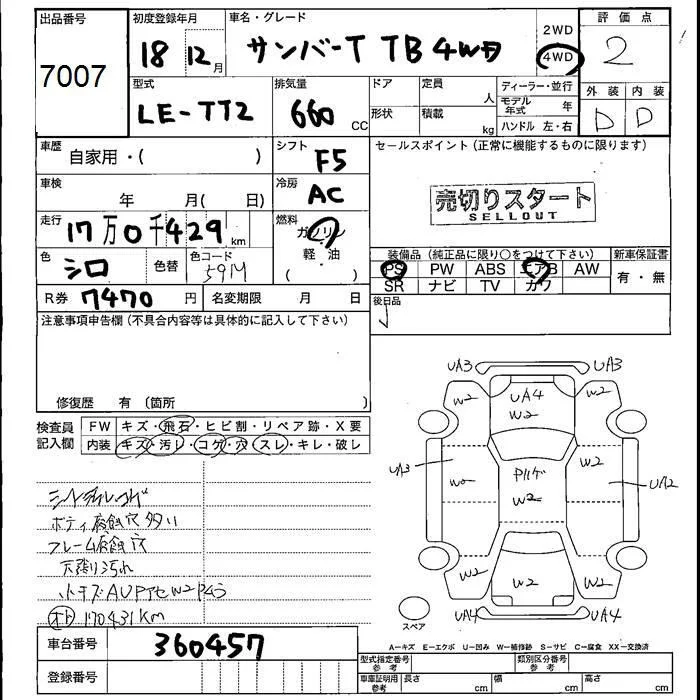 出品番号
7007
初度登録年月
18 12月
車名・グレード
サンバーT TB 4WD
2WD
4WD
評価点
2
外装 内装
D D
型式
LE-TT2
排気量
660 CC
ドア
形状
定員
人
積載
kg
ディーラー・並行
モデル年式 年
ハンドル 左・右
車歴
自家用・( )
シフト
F5
車検
年 月( 日)
冷房
AC
走行
17万0千429km
燃料
ガソリン
軽・油
( )
色
シロ
色替
色コード
59M
R券 7470円
名変期限 月 日
セールスポイント (正常に機能するものに限ります)
売切りスタート
SELLOUT
装備品 (純正品に限り○をつけて下さい)
新車保証書
PS PW ABS エアB AW
SR ナビ TV カワ
有・無
後日品
注意事項申告欄 (不具合内容等は具体的に記入して下さい)
修復歴 有 (箇所 )
検査員記入欄
FW キズ・飛石・ヒビ割・リペア跡・X要
内装 キズ・汚レ・コゲ・穴・スレ・キレ・破レ
ボディ腐蝕穴多い
フレーム腐蝕穴
天張り汚れ
170431km
UA3 UA3
W2 UA4 W2
W2
UA3 W2 UA2
W2
W2 W2 W2
UA4 UA4
スペア
A―キズ E―エクボ U―凹み W―補修跡 S―サビ C―腐食 XX―交換済
車台番号 360457
登録番号
型式指定番号 参考
類別区分番号 参考
車庫証明用 参考
長さ cm
幅 cm
高さ cm